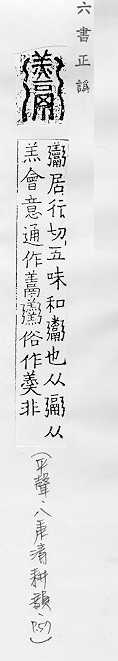 六書正譌
𩱧居行切五味和𩱧也从䰜从
羔會意通作俗作羹非
(平聲、八庚清耕韻、P.57)